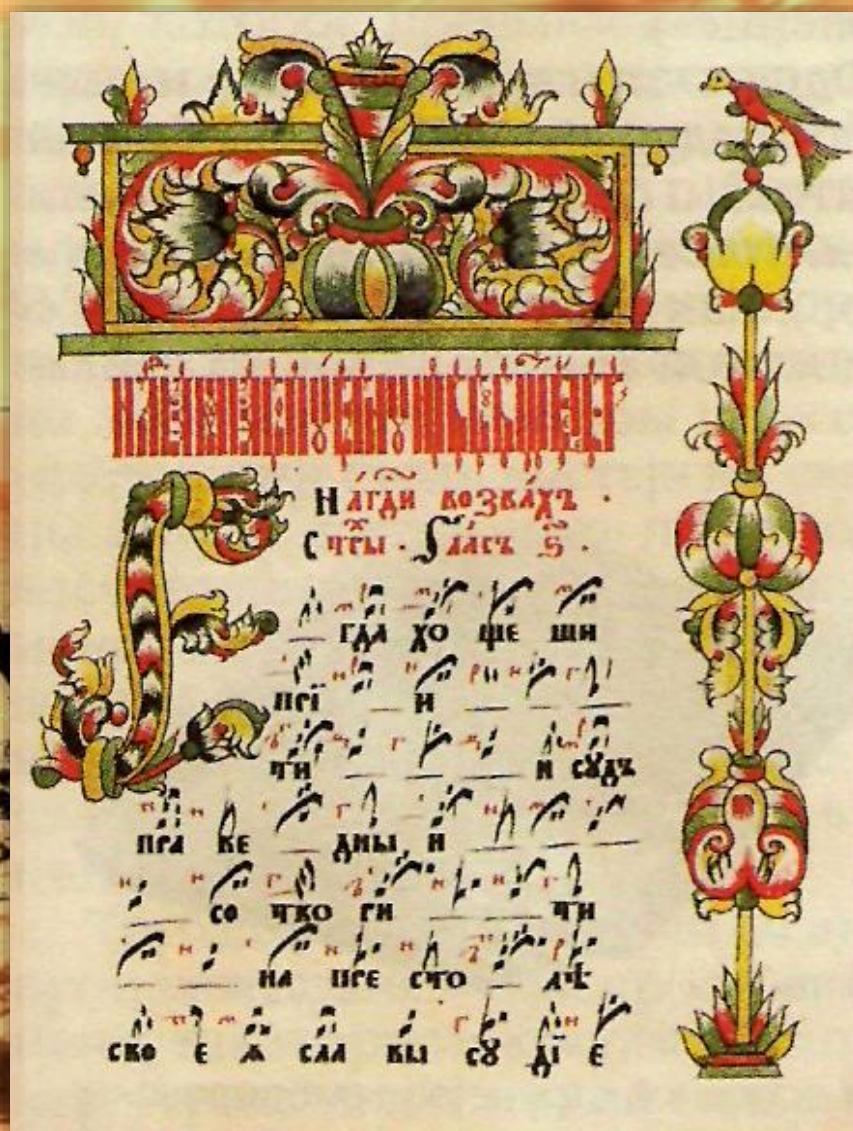 На гд҃и возва́хъ ·
Стр҃ы · Гла́съ ѕ҃ ·
Е гда хо ще ши
прї и
ти и сꙋдъ
пра ве дны и
со тво ри ти
на пре сто лѣ
сво е ѧ сла вы сꙋ дї е